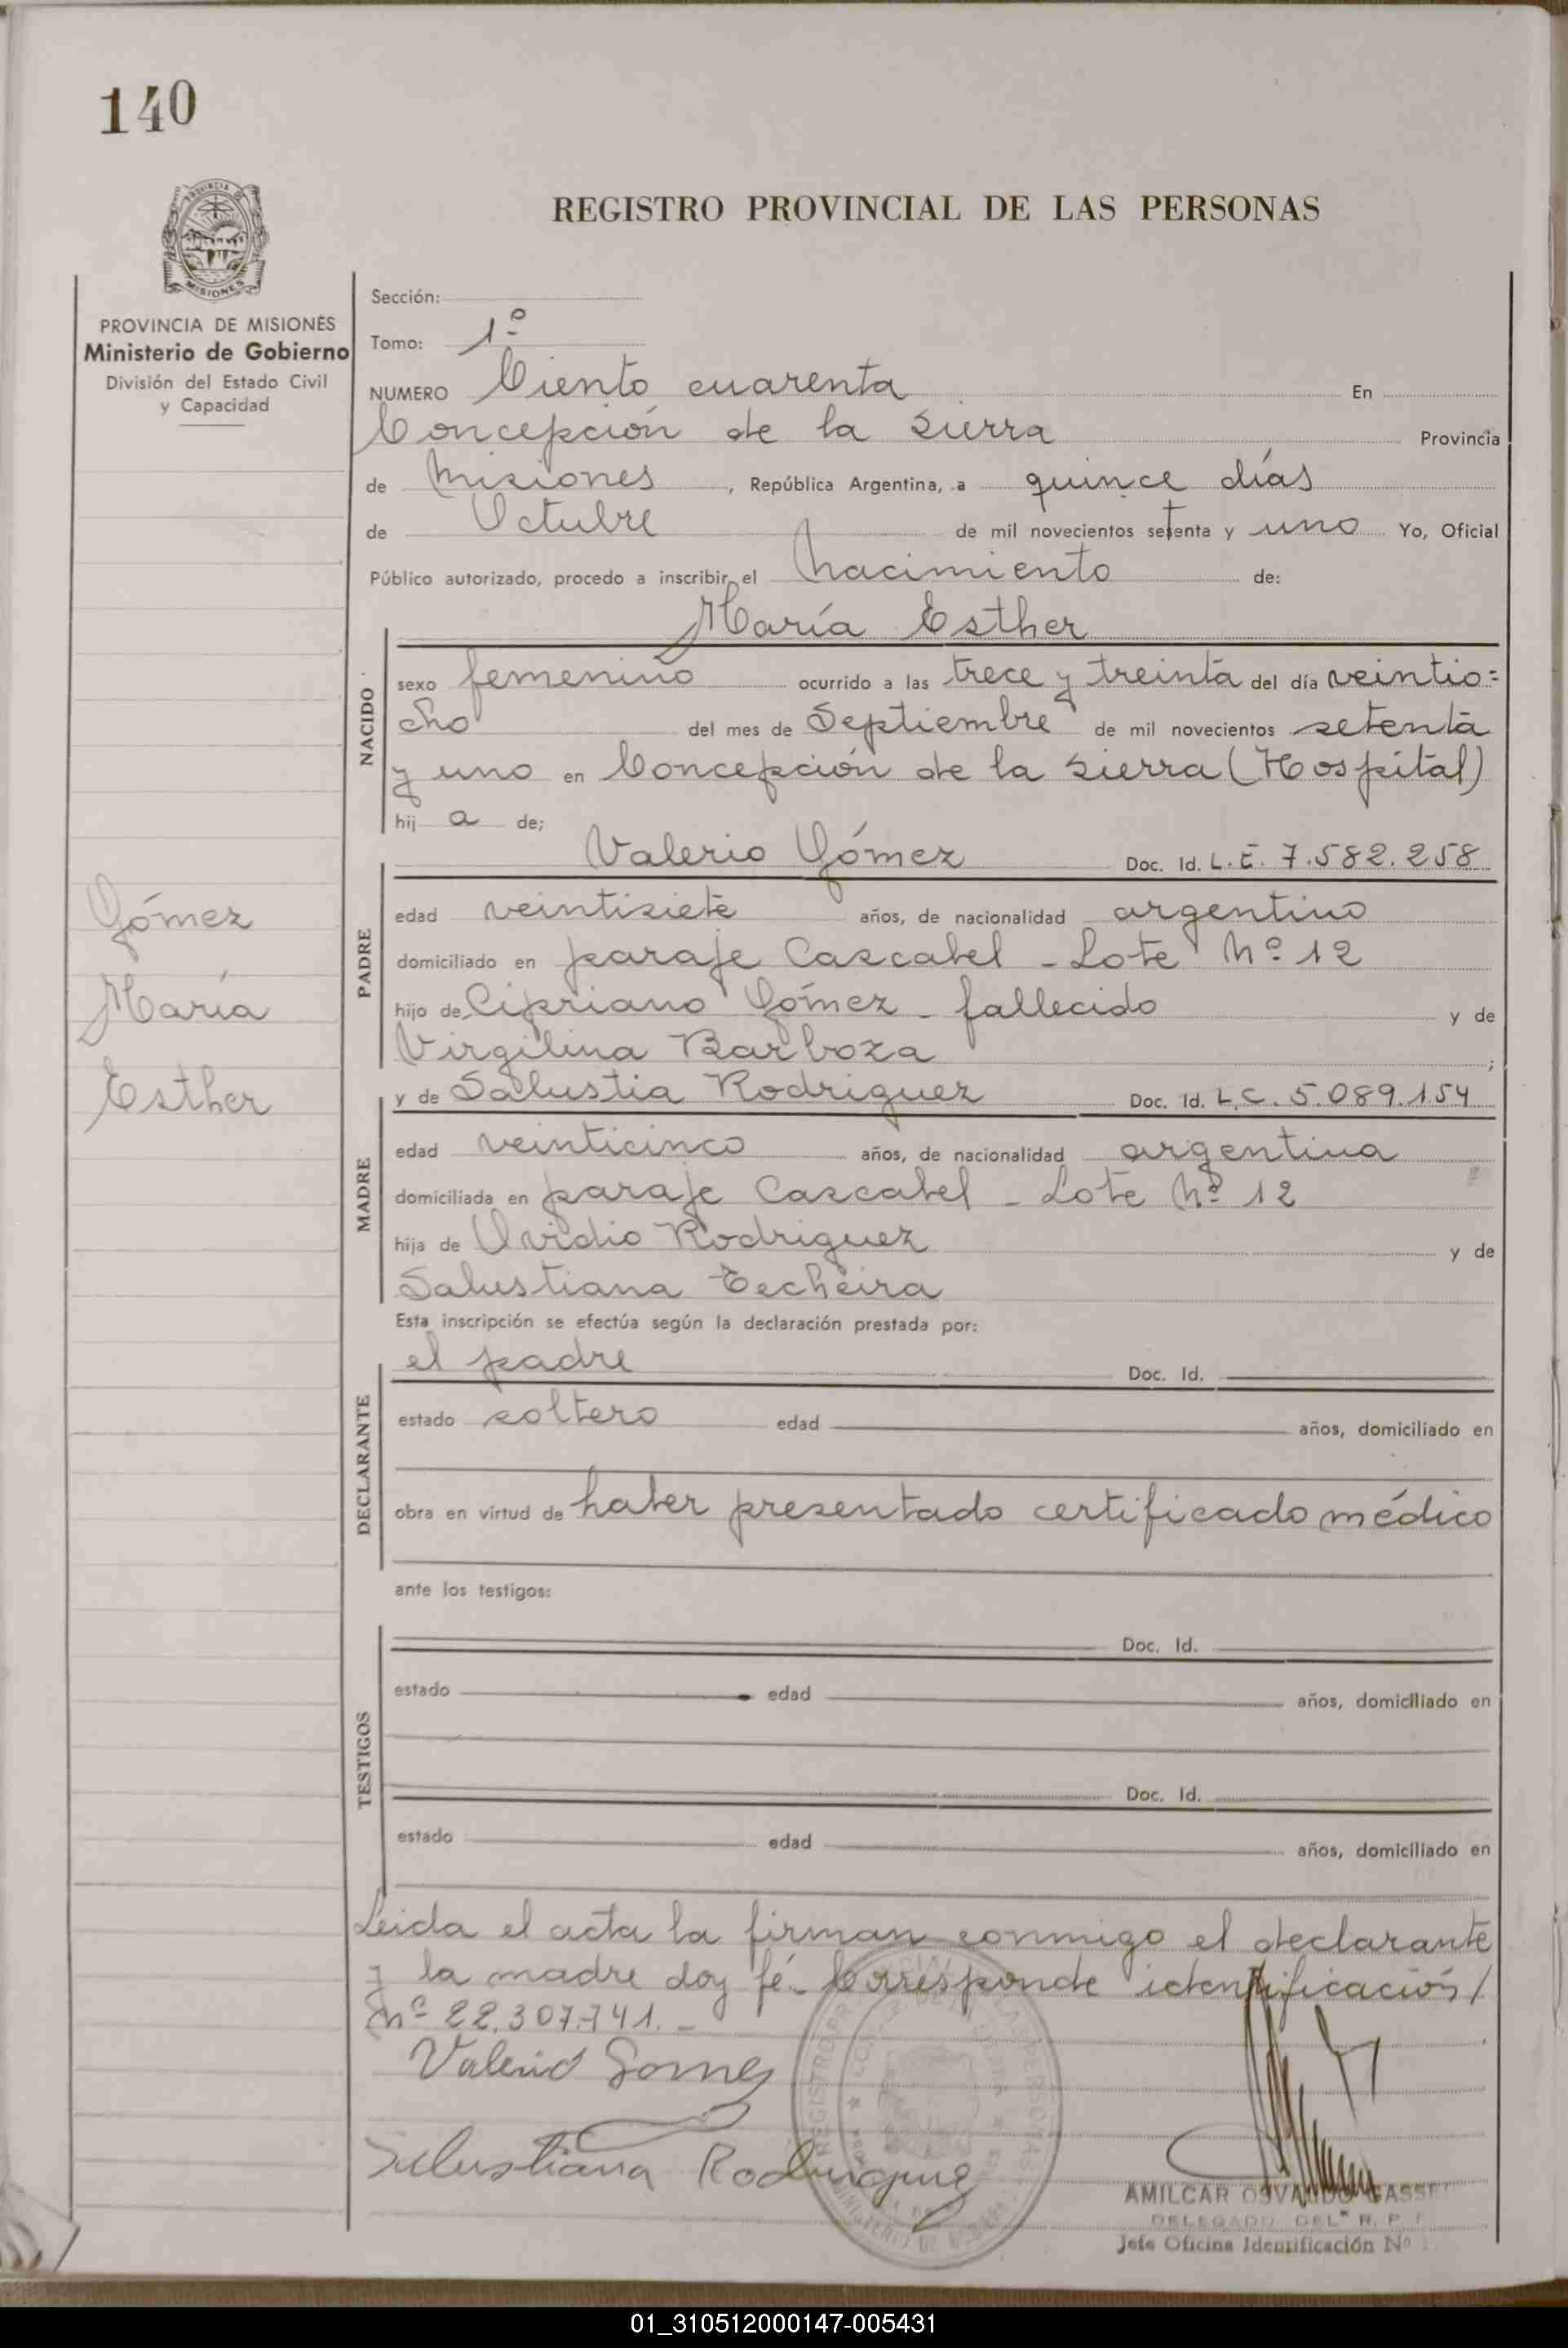 140
REGISTRO PROVINCIAL DE LAS PERSONAS
PROVINCIA DE MISIONES
Ministerio de Gobierno
División del Estado Civil
y Capacidad
Sección:
Tomo: 1º
NUMERO Ciento cuarenta En
Concepción de la Sierra Provincia
de Misiones, República Argentina, a quince días
de Octubre de mil novecientos setenta y uno Yo, Oficial
Público autorizado, procedo a inscribir el Nacimiento de:
María Esther
NACIDO
sexo femenino ocurrido a las trece y treinta del día veintio=
cho del mes de Septiembre de mil novecientos setenta
y uno en Concepción de la Sierra (Hospital)
hij a de;
Valerio Gómez Doc. Id. L.E. 7.582.258
Gómez
María
Esther
PADRE
edad veintisiete años, de nacionalidad argentino
domiciliado en paraje Cascabel - Lote Nº 12
hijo de Cipriano Gómez - fallecido y de
Virgilina Barboza ;
y de Salustia Rodriguez Doc. Id. L.C. 5.089.154
MADRE
edad veinticinco años, de nacionalidad argentina
domiciliada en paraje Cascabel - Lote Nº 12
hija de Ovidio Rodriguez y de
Salustiana Techeira
Esta inscripción se efectúa según la declaración prestada por:
DECLARANTE
el padre Doc. Id.
estado soltero edad años, domiciliado en
obra en virtud de haber presentado certificado médico
ante los testigos:
TESTIGOS
Doc. Id.
estado edad años, domiciliado en
Doc. Id.
estado edad años, domiciliado en
Leida el acta la firman conmigo el declarante
y la madre doy fé.- Corresponde identificación/
Nº 22.307.741.-
Valerio Gomez
Salustiana Rodriguez
AMILCAR OSVALDO GASSE
DELEGADO DEL R. P.
Jefe Oficina Identificación Nº
01_310512000147-005431